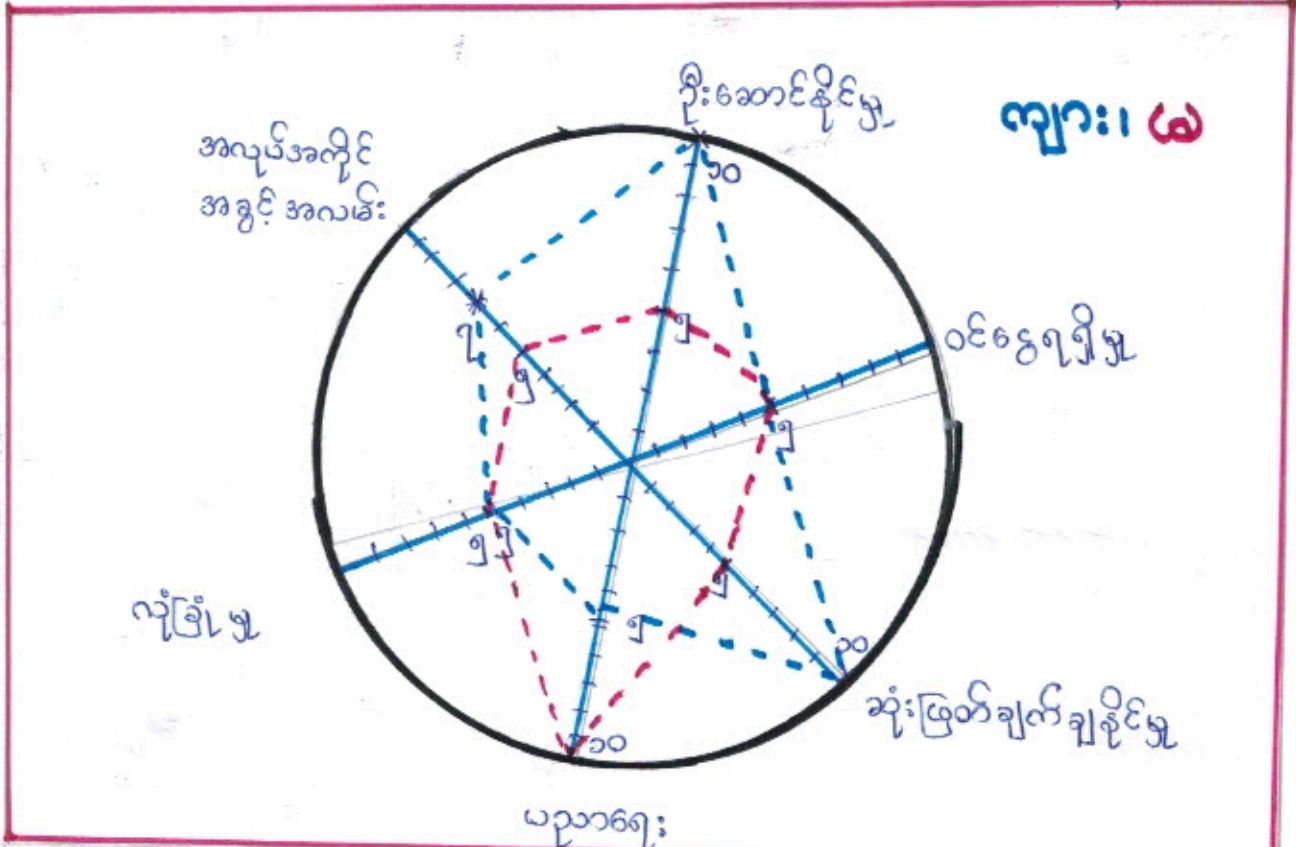 ကျား၊ မ
ဦးဆောင်နိုင်မှု
၁၀
အလုပ်အကိုင်
အခွင့်အလမ်း
၇
၅
၅
ဝင်ငွေရရှိမှု
၅
၅
၅
၅
၅
လုံခြုံမှု
၁၀
ဆုံးဖြတ်ချက်ချနိုင်မှု
၁၀
ပညာရေး